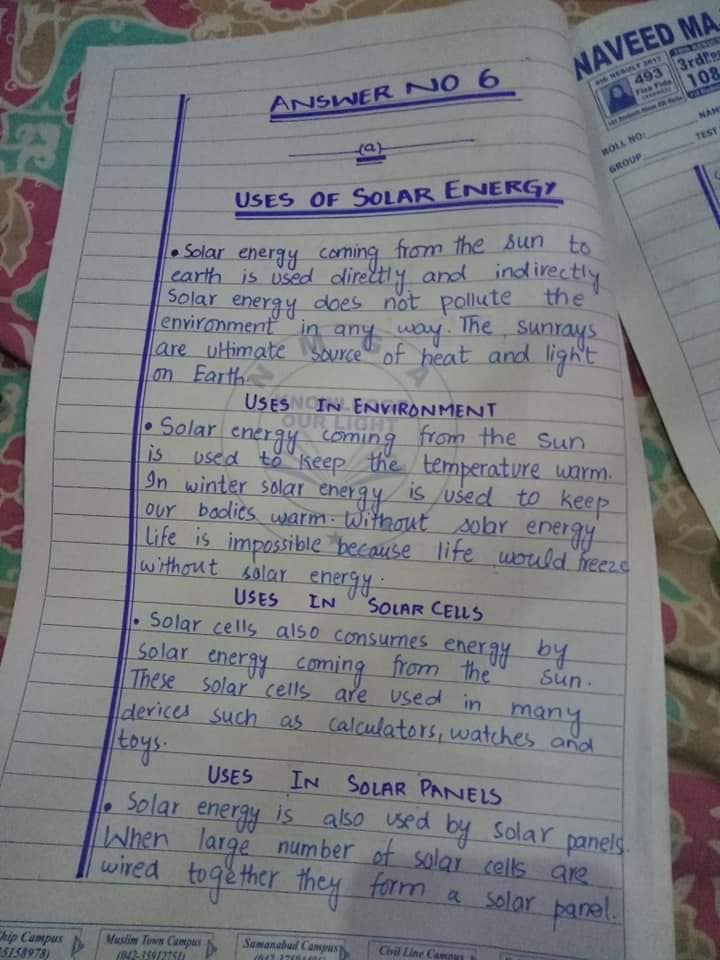 ANSWER NO 6
(a)
USES OF SOLAR ENERGY
• Solar energy coming from the sun to
earth is used directly and indirectly
Solar energy does not pollute the
environment in any way. The sunrays
are ultimate source of heat and light
on Earth.
USES IN ENVIRONMENT
• Solar energy coming from the sun
is used to keep the temperature warm.
In winter solar energy is used to keep
our bodies warm. Without solar energy
life is impossible because life would freeze
without solar energy.
USES IN SOLAR CELLS
• Solar cells also consumes energy by
solar energy coming from the sun.
These solar cells are used in many
devices such as calculators, watches and
toys.
USES IN SOLAR PANELS
• Solar energy is also used by solar panels.
When large number of solar cells are
wired together they form a solar panel.
NMGA
KNOWLEDGE
OUR LIGHT
NAVEED MA
RESULT 2017
493
Fiza Fida
3rd
108
ROLL NO:
NAM
GROUP
TEST
hip Campus
5158978)
Muslim Town Campus
(042-35912751)
Samanabad Campus
Civil Line Campus